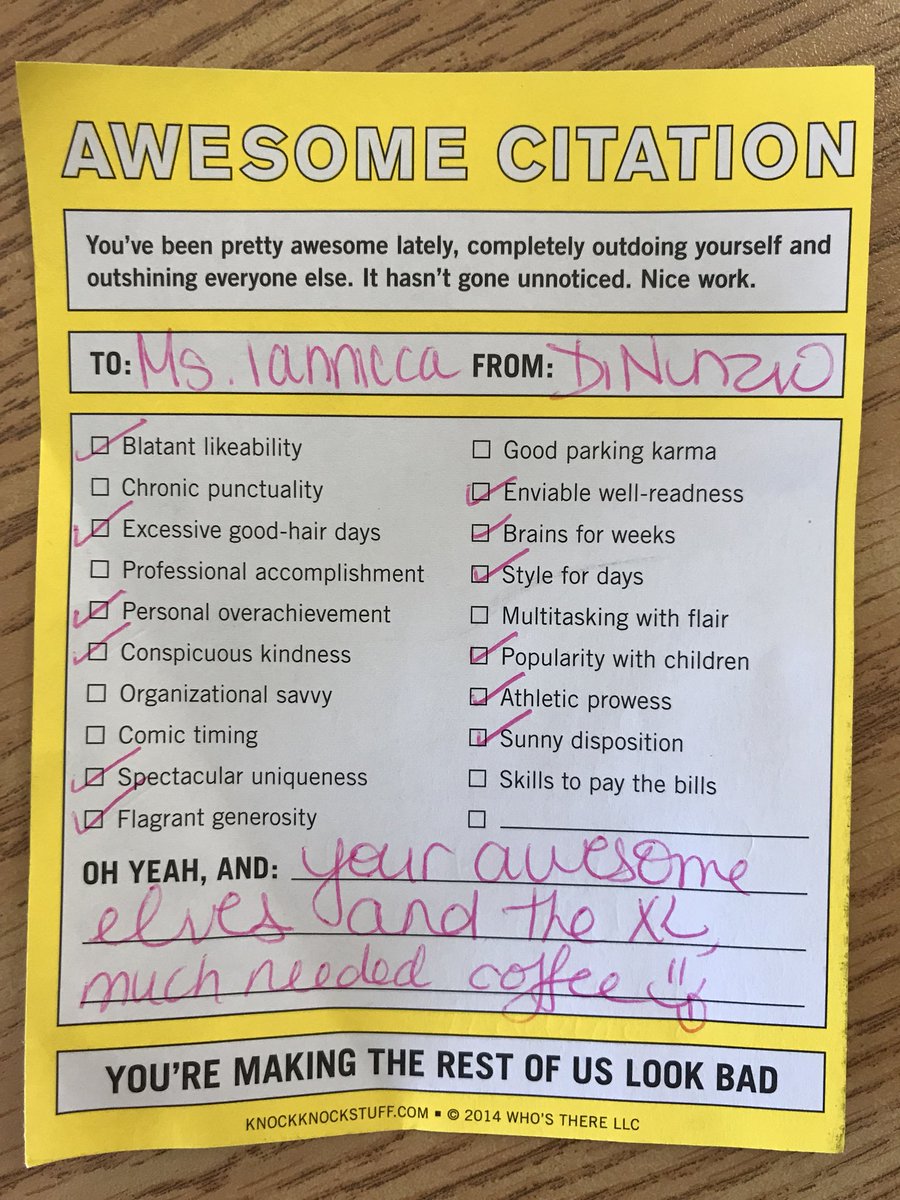 AWESOME CITATION
You've been pretty awesome lately, completely outdoing yourself and
outshining everyone else. It hasn't gone unnoticed. Nice work.
TO: Ms. Iannicca FROM: DiNunzio
Blatant likeability
Chronic punctuality
Excessive good-hair days
Professional accomplishment
Personal overachievement
Conspicuous kindness
Organizational savvy
Comic timing
Spectacular uniqueness
Flagrant generosity
Good parking karma
Enviable well-readness
Brains for weeks
Style for days
Multitasking with flair
Popularity with children
Athletic prowess
Sunny disposition
Skills to pay the bills
OH YEAH, AND: your awesome
elves and the XL,
much needed coffee
YOU'RE MAKING THE REST OF US LOOK BAD
KNOCKKNOCKSTUFF.COM ▪ © 2014 WHO'S THERE LLC